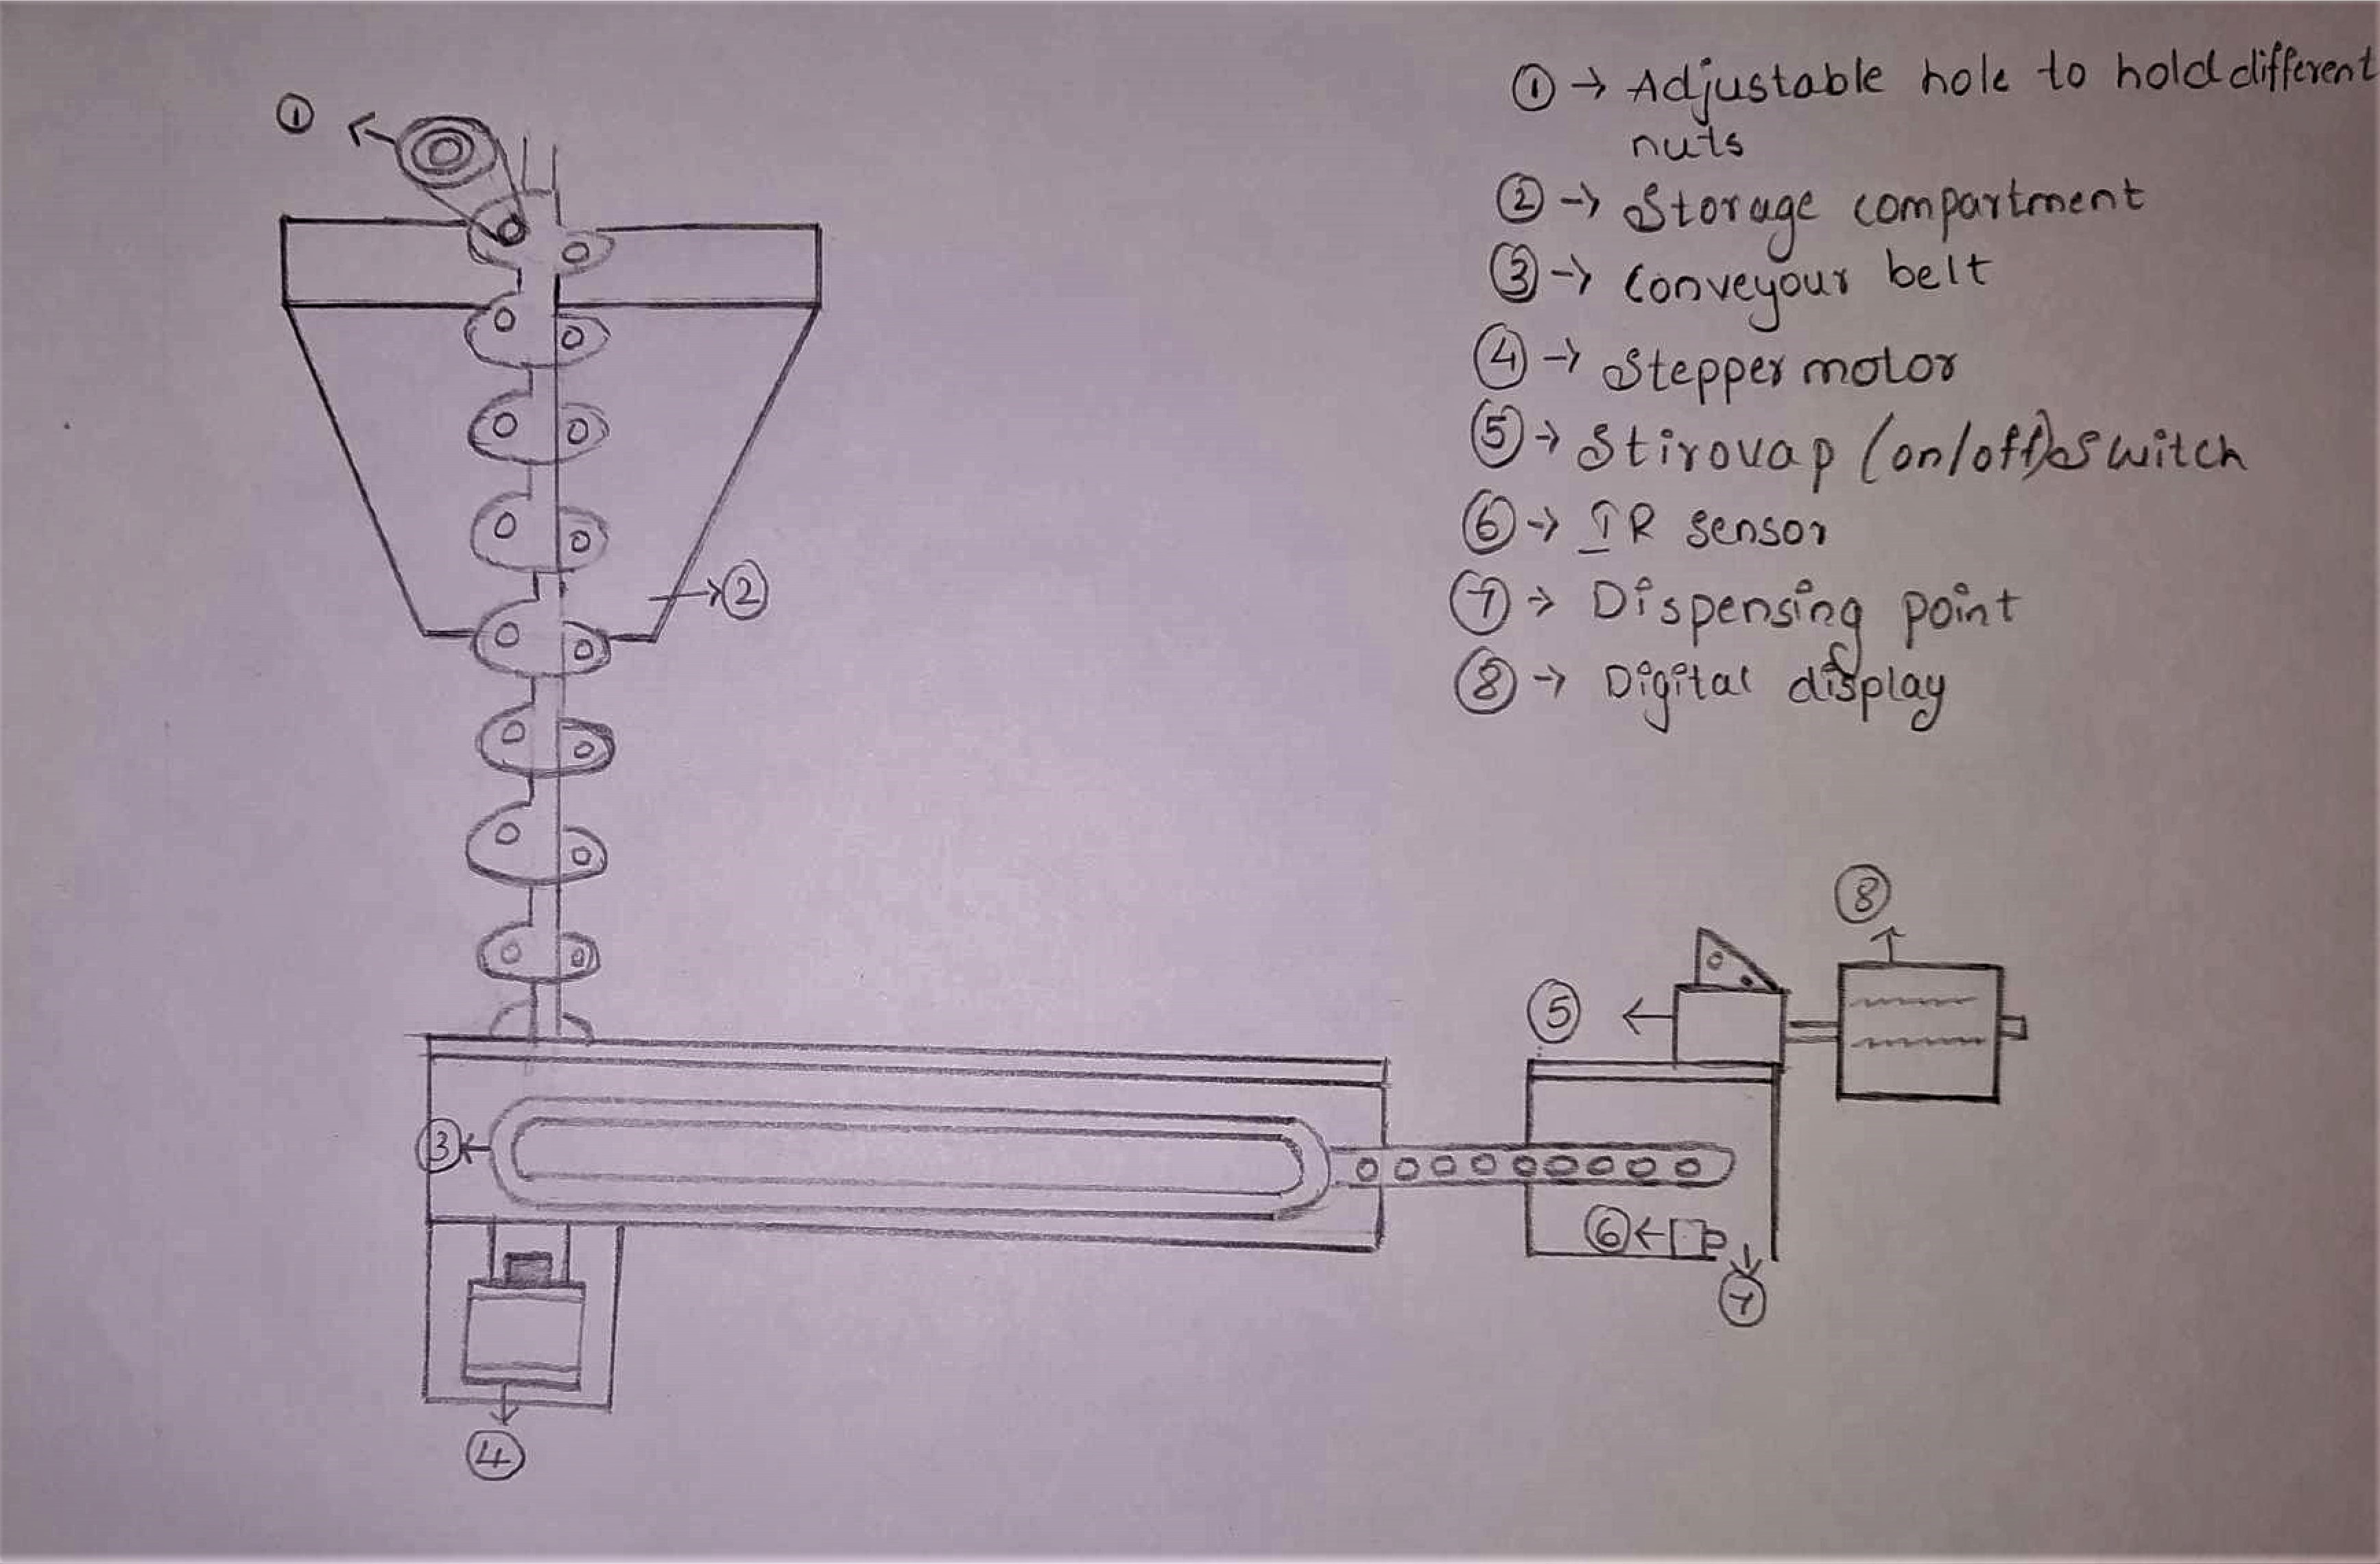 ① → Adjustable hole to hold different
nuts
② → Storage compartment
③ → Conveyour belt
④ → Stepper motor
⑤ → Stirovap (on/off) switch
⑥ → IR sensor
⑦ → Dispensing point
⑧ → Digital display
①
②
⑧
⑤
③
⑥
⑦
④